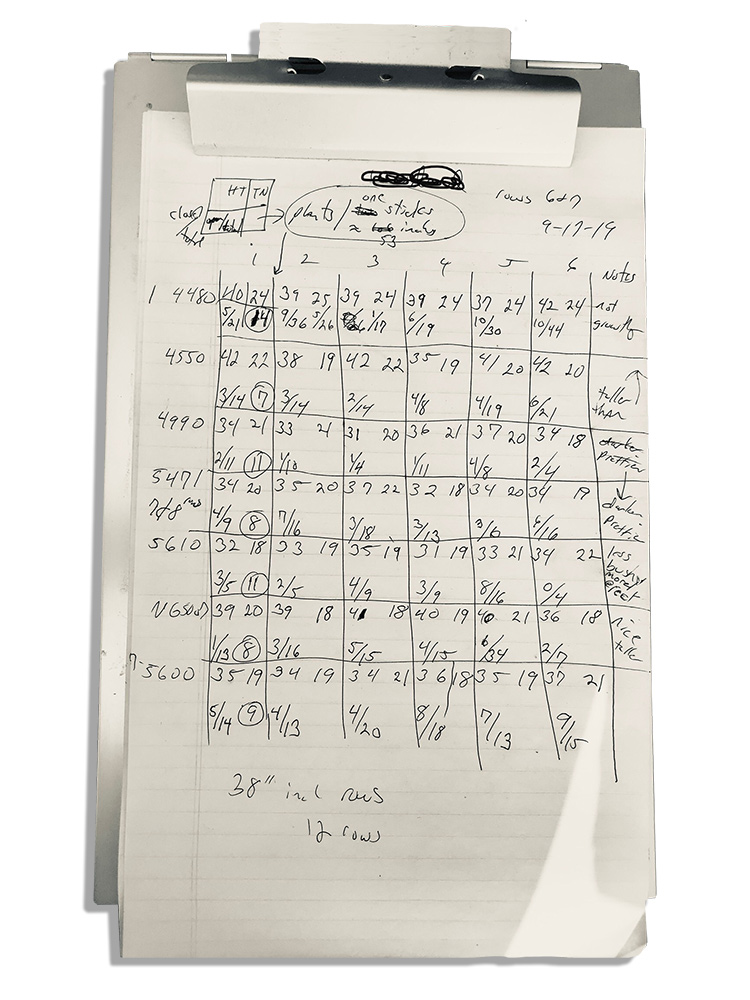 HT TN
one
plants / sticks
inches
53
rows 6 of 7
9-17-19
1 2 3 4 5 6 Notes
1 4480 40 24 39 25 39 24 39 24 37 24 42 24 not
5/21 14 9/36 5/26 1/17 6/19 10/30 10/44
4550 42 22 38 19 42 22 35 19 41 20 42 20
3/14 7 3/14 2/14 4/8 4/19 6/21 taller than
4990 34 21 33 21 31 20 36 21 37 20 34 18 prettier
2/11 11 1/10 1/4 1/11 4/8 2/4
5471 34 20 35 20 37 22 32 18 34 20 34 19 darker
7&8 4/9 8 7/16 3/18 3/13 3/6 8/16
5610 32 18 33 19 35 19 31 19 33 21 34 22 less
3/5 11 2/5 4/9 3/9 8/16 0/4
39 20 39 18 41 18 40 19 40 21 36 18 nice
1/13 8 3/16 5/15 4/15 6/34 2/7
5600 35 19 34 19 34 21 36 18 35 19 37 21
5/14 9 4/13 4/20 8/18 7/13 9/15
38" rows
12 rows